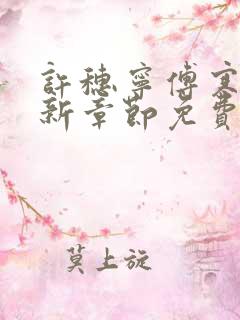 許穗寧傅寒
新章節免費
莫上旋